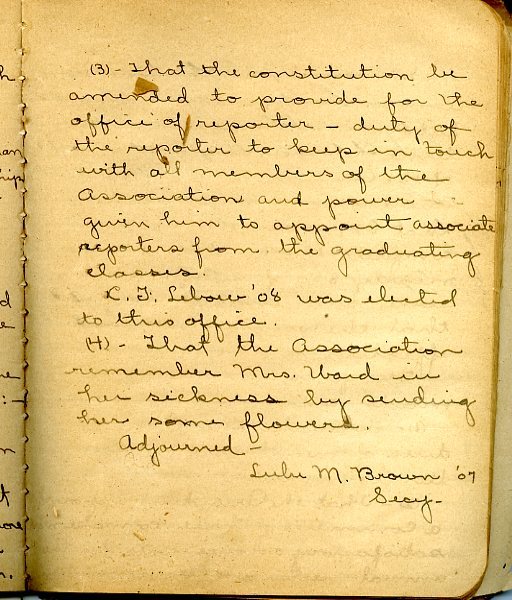 (3) - That the constitution be
amended to provide for the
office of reporter - duty of
the reporter to keep in touch
with all members of the
Association and power
given him to appoint associate
reporters from the graduating
classes.
L. F. Lebow '08 was elected
to this office.
(4) - That the Association
remember Mrs. Ward in
her sickness by sending
her some flowers.
Adjourned -
Lulu M. Brown '07
Secy-